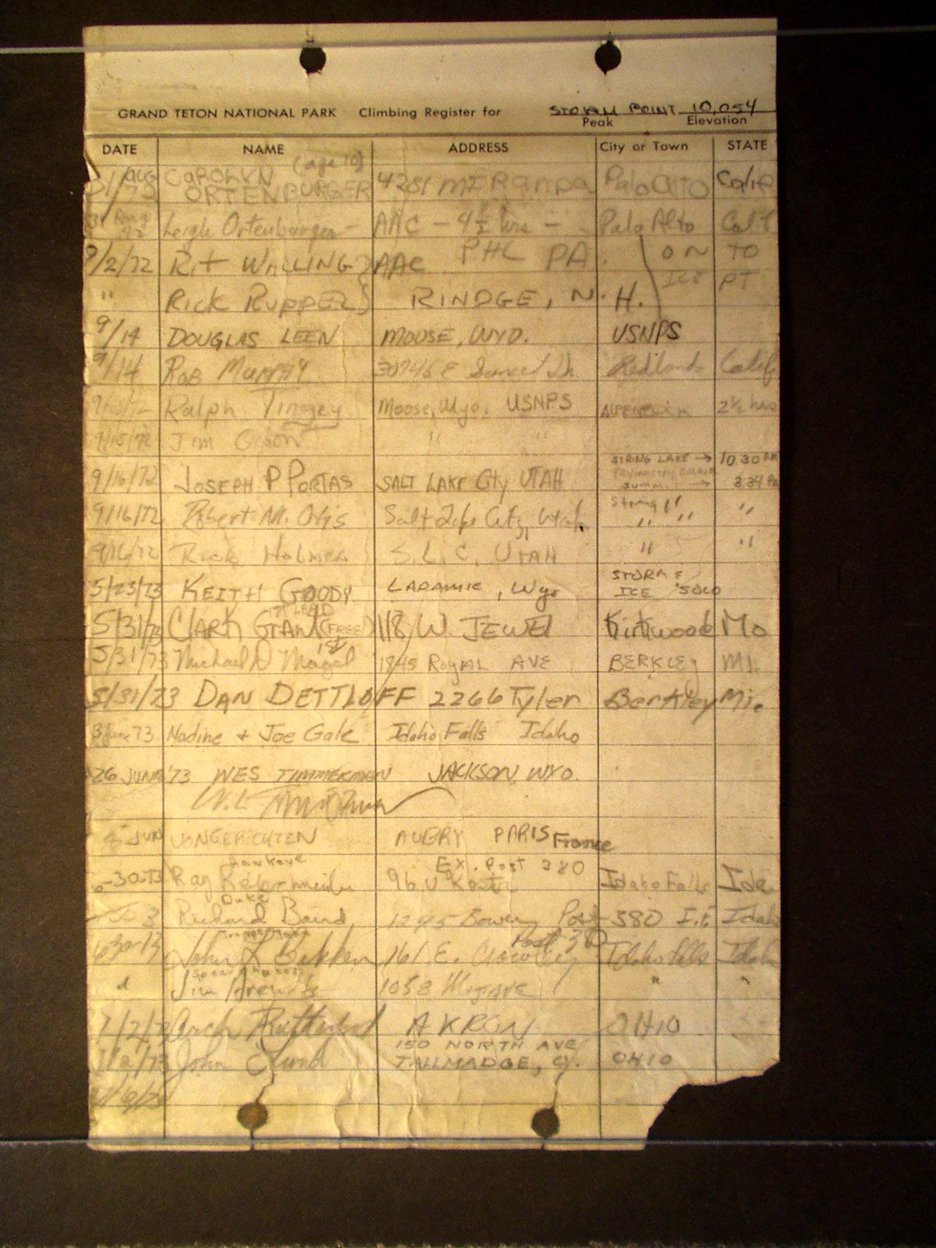 GRAND TETON NATIONAL PARK Climbing Register for STORM POINT 10,054
Peak Elevation
DATE NAME ADDRESS City or Town STATE
31/AUG/72 CAROLYN (age 10) ORTENBURGER 4281 MIRANDA Palo Alto Calif
31 Aug 72 Leigh Ortenburger - AAC - 4 1/2 hrs - Palo Alto Calif
9/2/72 RIT WALLING } AAC PHL PA. ON TO
ICE PT
" RICK RUPPEL } RINDGE, N.H.
9/14 DOUGLAS LEEN MOOSE, WYO. USNPS
9/14 Rob Murray 30946 E Sunset Dr. Redlands Calif
Ralph Tingey Moose, Wyo. USNPS 2½ hrs
9/15/72 Jim Olson " "
STRING LAKE → 10:30 AM
9/16/72 JOSEPH P PORTAS SALT LAKE City UTAH
SUMM. → 3:34 PM
9/16/72 Robert M. Otis Salt Lake City, Utah String " " " "
9/16/72 Rick Holmes S.L.C. UTAH " "
5/23/73 KEITH GOODY LARAMIE, Wyo STORM &
ICE 'SOLO
5/31/73 CLARK GRANT (FREE) 118 W. JEWEL Kirkwood Mo
1st
5/31/73 Michael D Magel 1845 ROYAL AVE BERKLEY MI.
5/31/73 DAN DETTLOFF 2266 Tyler Berkley Mi.
3 June 73 Nadine + Joe Gale Idaho Falls Idaho
26 JUNE '73 WES TIMMERMAN JACKSON, WYO.
JUN VONGERICHTEN AUBRY PARIS France
Hawkeye Ex. Post 380
6-30-73 Ray Idaho Falls Ida
Duke
Richard Baird 1245 Bower Post 380 I.F. Idaho
Post 380
6-30-73 John L Bakken 161 E. Crowley Idaho Falls Idaho
" Jim 1058 " "
7/2/73 Arch Rutherford AKRON OHIO
150 NORTH AVE
John TALLMADGE, OHIO